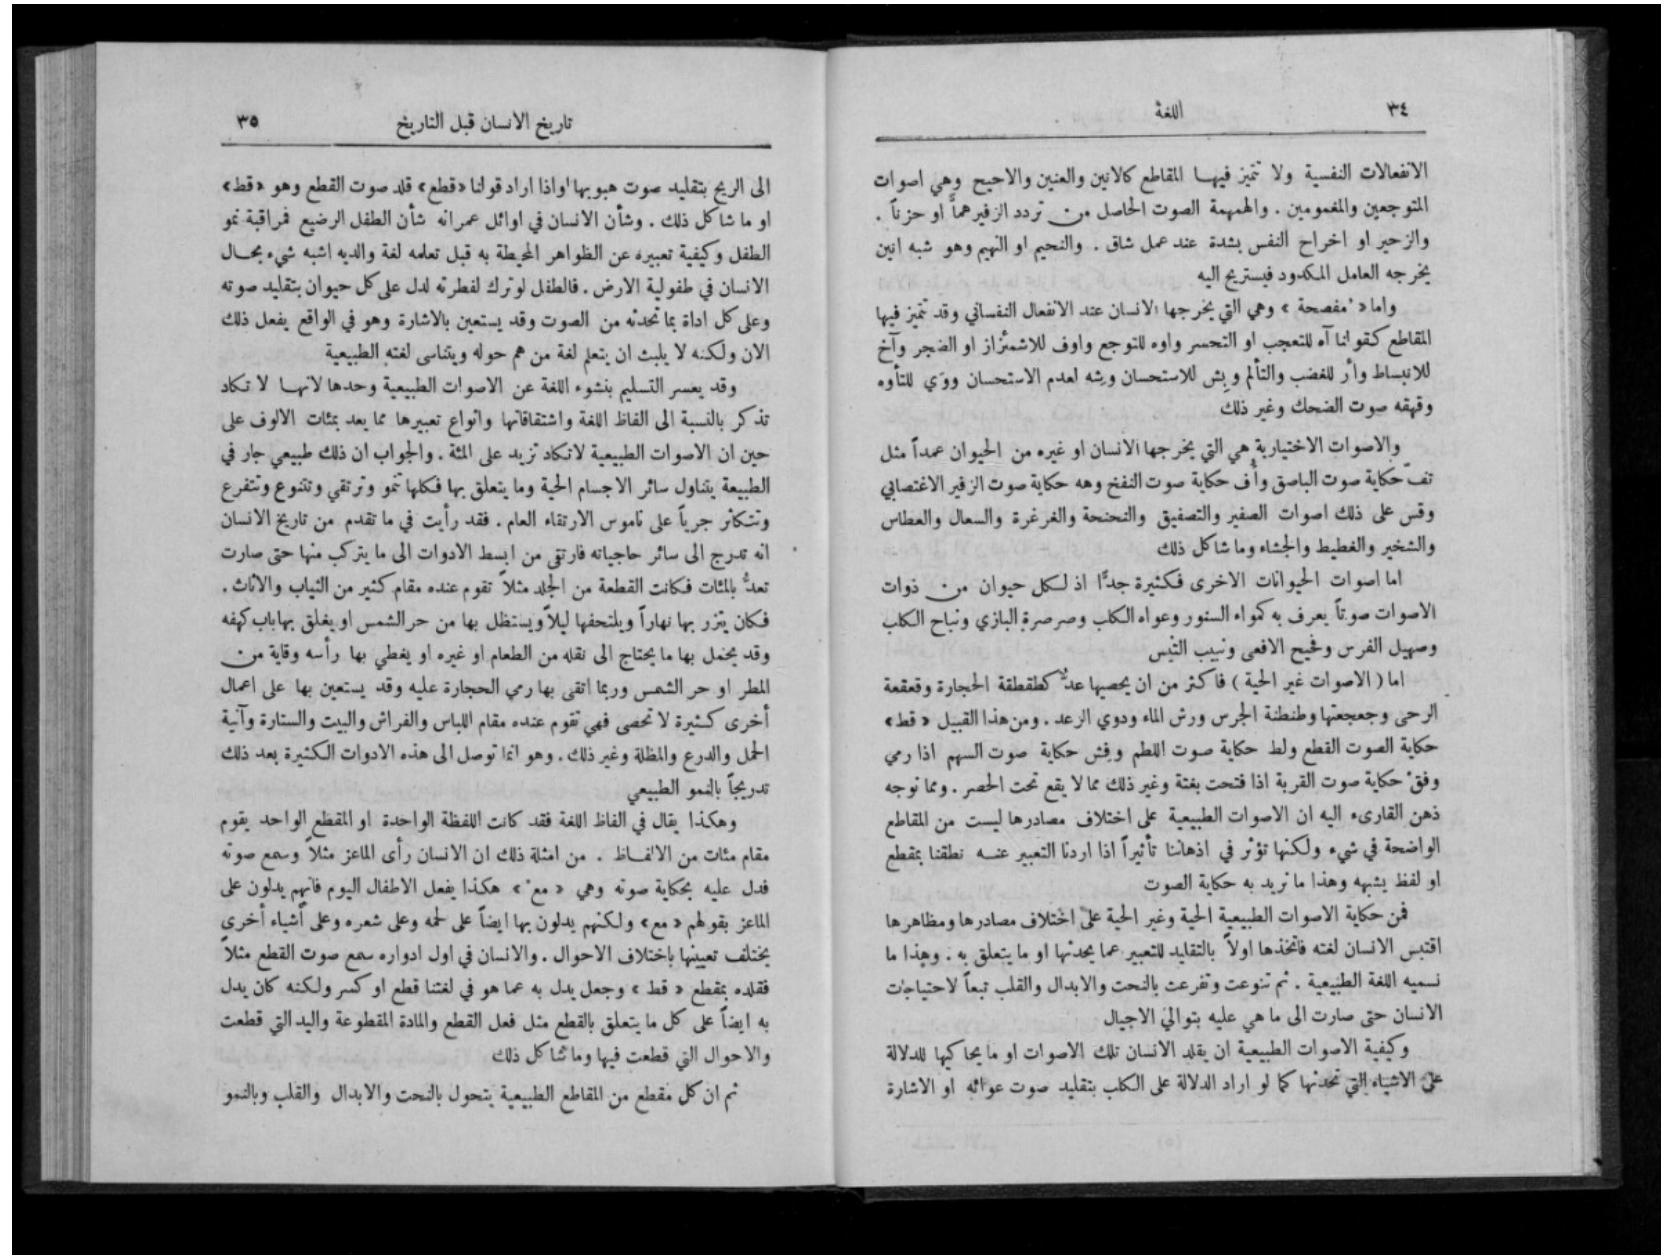 ٣٤
اللغة
الانفعالات النفسية ولا تتميز فيها المقاطع كالانين والعنين والاحيح وهي اصوات
المتوجعين والمغمومين . والهمهمة الصوت الحاصل من تردد الزفير هماً او حزناً .
والزحير او اخراج النفس بشدة عند عمل شاق . والنحيم او النهيم وهو شبه انين
يخرجه العامل المكدود فيستريح اليه
واما « مفصحة » وهي التي يخرجها الانسان عند الانفعال النفساني وقد تتميز فيها
المقاطع كقولنا آه للتعجب او التحسر واوه للتوجع واوف للاشمئزاز او الضجر وآخ
للانبساط وأر للغضب والتألم وبِش للاستحسان وبشه لعدم الاستحسان ووَي للتأوه
وقهقه صوت الضحك وغير ذلك
والاصوات الاختيارية هي التي يخرجها الانسان او غيره من الحيوان عمداً مثل
تفّ حكاية صوت الباصق وأف حكاية صوت النفخ وهه حكاية صوت الزفير الاغتصابي
وقس على ذلك اصوات الصفير والتصفيق والنحنحة والغرغرة والسعال والعطاس
والشخير والغطيط والجشاء وما شاكل ذلك
اما اصوات الحيوانات الاخرى فكثيرة جدًّا اذ لكل حيوان من ذوات
الاصوات صوتاً يعرف به كمواء السنور وعواء الكلب وصرصرة البازي ونباح الكلب
وصهيل الفرس وفحيح الافعى ونبيب التيس
اما ( الاصوات غير الحية ) فاكثر من ان يحصيها عدٌّ كطقطقة الحجارة وقعقعة
الرحى وجعجعتها وطنطنة الجرس ورش الماء ودوي الرعد . ومن هذا القبيل « قط »
حكاية الصوت القطع ولط حكاية صوت اللطم وفِش حكاية صوت السهم اذا رمي
وفقْ حكاية صوت القربة اذا فتحت بغتة وغير ذلك مما لا يقع تحت الحصر . ومما نوجه
ذهن القارىء اليه ان الاصوات الطبيعية على اختلاف مصادرها ليست من المقاطع
الواضحة في شيء ولكنها تؤثر في اذهاننا تأثيراً اذا اردنا التعبير عنه نطقنا بمقطع
او لفظ يشبهه وهذا ما نريد به حكاية الصوت
فمن حكاية الاصوات الطبيعية الحية وغير الحية على اختلاف مصادرها ومظاهرها
اقتبس الانسان لغته فاتخذها اولاً بالتقليد للتعبير عما يحدثها او ما يتعلق به . وهذا ما
نسميه اللغة الطبيعية . ثم تنوعت وتفرعت بالنحت والابدال والقلب تبعاً لاحتياجات
الانسان حتى صارت الى ما هي عليه بتوالي الاجيال
وكيفية الاصوات الطبيعية ان يقلد الانسان تلك الاصوات او ما يحاكيها للدلالة
على الاشياء التي تحدثها كما لو اراد الدلالة على الكلب بتقليد صوت عوائه او الاشارة
تاريخ الانسان قبل التاريخ
٣٥
الى الريح بتقليد صوت هبوبها واذا اراد قولنا «قطع» قلد صوت القطع وهو «قط»
او ما شاكل ذلك . وشأن الانسان في اوائل عمرانه شأن الطفل الرضيع فمراقبة نمو
الطفل وكيفية تعبيره عن الظواهر المحيطة به قبل تعلمه لغة والديه اشبه شيء بحال
الانسان في طفولية الارض . فالطفل لو ترك لفطرته لدل على كل حيوان بتقليد صوته
وعلى كل اداة بما تحدثه من الصوت وقد يستعين بالاشارة وهو في الواقع يفعل ذلك
الان ولكنه لا يلبث ان يتعلم لغة من هم حوله ويتناسى لغته الطبيعية
وقد يعسر التسليم بنشوء اللغة عن الاصوات الطبيعية وحدها لانها لا تكاد
تذكر بالنسبة الى الفاظ اللغة واشتقاقاتها وانواع تعبيرها مما يعد بمئات الالوف على
حين ان الاصوات الطبيعية لا تكاد تزيد على المئة . والجواب ان ذلك طبيعي جار في
الطبيعة يتناول سائر الاجسام الحية وما يتعلق بها فكلها تنمو وترتقي وتتنوع وتتفرع
وتتكاثر جرياً على ناموس الارتقاء العام . فقد رأيت في ما تقدم من تاريخ الانسان
انه تدرج الى سائر حاجياته فارتقى من ابسط الادوات الى ما يتركب منها حتى صارت
تعدُّ بالمئات فكانت القطعة من الجلد مثلاً تقوم عنده مقام كثير من الثياب والاثاث .
فكان يتزر بها نهاراً ويلتحفها ليلاً ويستظل بها من حر الشمس او يغلق بها باب كهفه
وقد يحمل بها ما يحتاج الى نقله من الطعام او غيره او يغطي بها رأسه وقاية من
المطر او حر الشمس وربما اتقى بها رمي الحجارة عليه وقد يستعين بها على اعمال
أخرى كثيرة لا تحصى فهي تقوم عنده مقام اللباس والفراش والبيت والستارة وآنية
الحمل والدرع والمظلة وغير ذلك . وهو انما توصل الى هذه الادوات الكثيرة بعد ذلك
تدريجاً بالنمو الطبيعي
وهكذا يقال في الفاظ اللغة فقد كانت اللفظة الواحدة او المقطع الواحد يقوم
مقام مئات من الالفاظ . من امثلة ذلك ان الانسان رأى الماعز مثلاً وسمع صوته
فدل عليه بحكاية صوته وهي « مع » هكذا يفعل الاطفال اليوم فانهم يدلون على
الماعز بقولهم « مع » ولكنهم يدلون بها ايضاً على لحمه وعلى شعره وعلى أشياء أخرى
يختلف تعيينها باختلاف الاحوال . والانسان في اول ادواره سمع صوت القطع مثلاً
فقلده بمقطع « قط » وجعل يدل به عما هو في لغتنا قطع او كسر ولكنه كان يدل
به ايضاً على كل ما يتعلق بالقطع مثل فعل القطع والمادة المقطوعة واليد التي قطعت
والاحوال التي قطعت فيها وما شاكل ذلك
ثم ان كل مقطع من المقاطع الطبيعية يتحول بالنحت والابدال والقلب وبالنمو